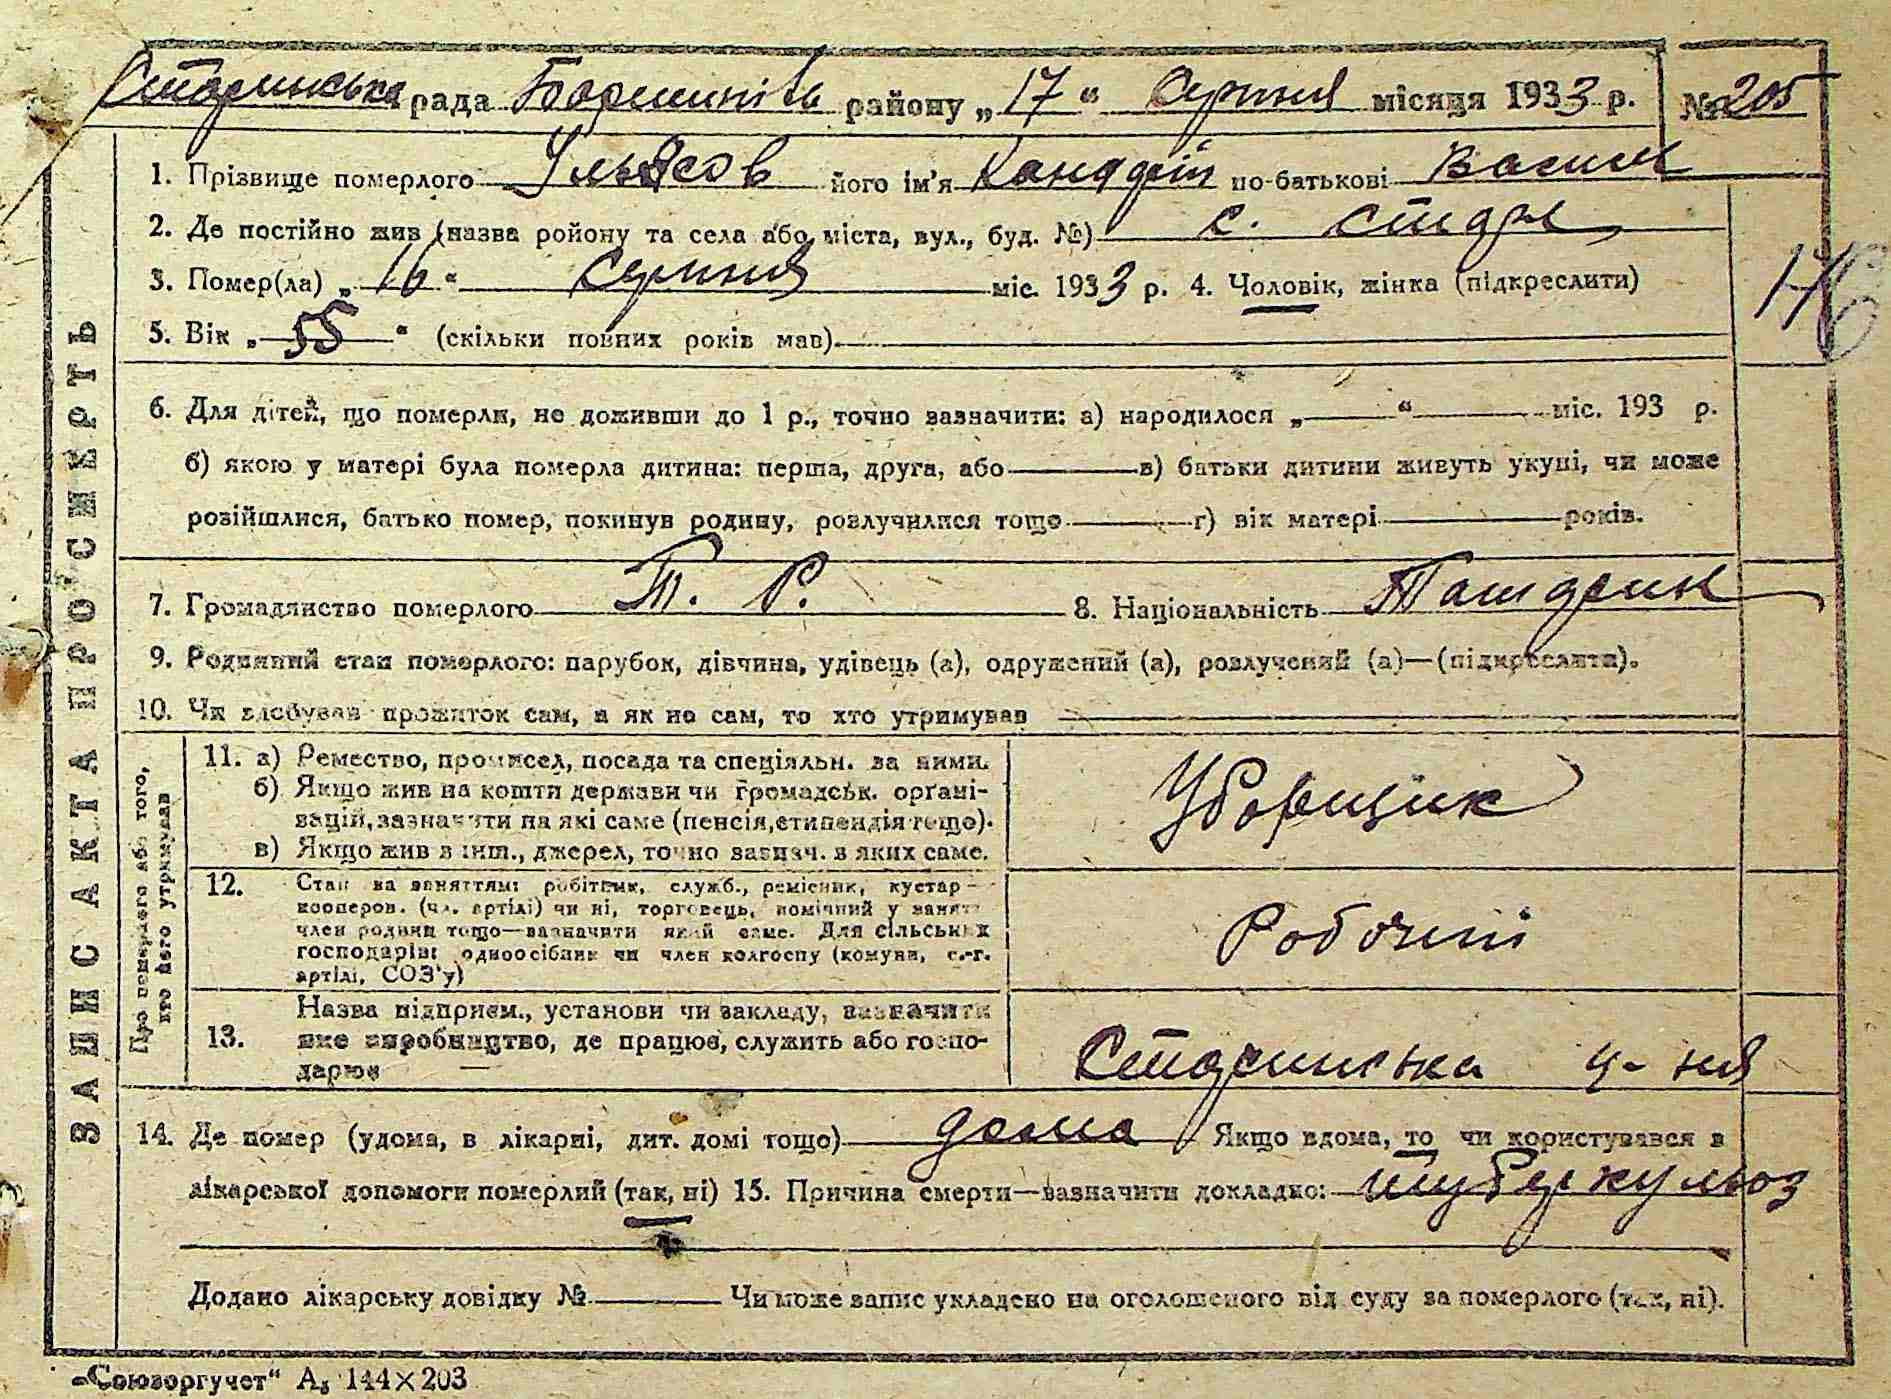 Старинська рада Баришпівськ району „17“ Серпня місяця 1933 р. № 205
1. Прізвище померлого Ульясов його ім'я по-батькові Васил
2. Де постійно жив (назва ройону та села або міста, вул., буд. №) с. Старе
3. Помер(ла) „16“ Серпня міс. 1933 р. 4. Чоловік, жінка (підкреслити)
5. Вік „55“ (скільки повних років мав)
6. Для дітей, що померли, не доживши до 1 р., точно зазначити: а) народилося „ “ міс. 193 р.
б) якою у матері була померла дитина: перша, друга, або в) батьки дитини живуть укупі, чи може
розійшлися, батько помер, покинув родину, розлучилися тощо г) вік матері років.
7. Громадянство померлого Т. Р. 8. Національність
9. Родинний стан померлого: парубок, дівчина, удівець (а), одружений (а), розлучений (а)—(підкреслити).
10. Чи здобував прожиток сам, а як не сам, то хто утримував
ЗАПИС АКТА ПРО СМЕРТЬ
Про померлого або того, хто його утримував
11. а) Ремество, промисел, посада та спеціяльн. за ними.
б) Якщо жив на кошти держави чи громадськ. органі-
зацій, зазначити на які саме (пенсія, стипендія тощо).
в) Якщо жив з інш., джерел, точно зазнач. з яких саме.
Уборщик
12. Стан за заняттям: робітник, служб., ремісник, кустар—
кооперов. (чл. артілі) чи ні, торговець, помічний у занятт
член родини тощо—зазначити який саме. Для сільських
господарів: одноосібник чи член колгоспу (комуни, с.-г.
артілі, СОЗ'у)
Робочий
13. Назва підприєм., установи чи закладу, визначити
яке виробництво, де працює, служить або госпо-
дарює
Старинська ц-ня
14. Де помер (удома, в лікарні, дит. домі тощо) дома Якщо вдома, то чи користувався з
лікарської допомоги померлий (так, ні) 15. Причина смерти—зазначити докладно: туберкульоз
Додано лікарську довідку № Чи може запис укладено на оголошеного від суду за померлого (так, ні).
„Союзоргучет“ А₅ 144×203